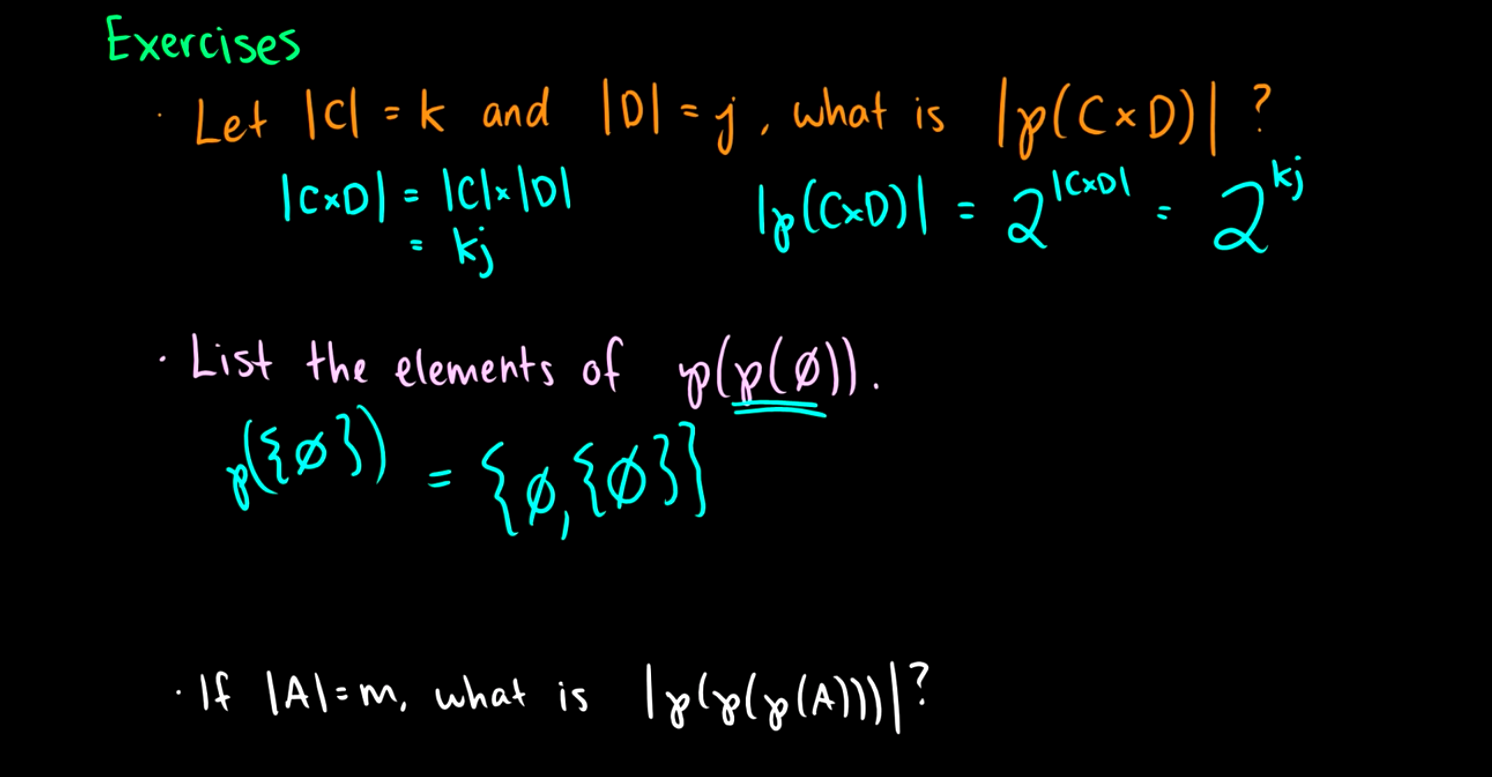 Exercises
· Let |C| = k and |D| = j, what is |℘(C×D)| ?
|C×D| = |C|×|D|
= kj
|℘(C×D)| = 2^|C×D| = 2^kj
· List the elements of ℘(℘(∅)).
℘({∅}) = {∅,{∅}}
· If |A|=m, what is |℘(℘(℘(A)))|?